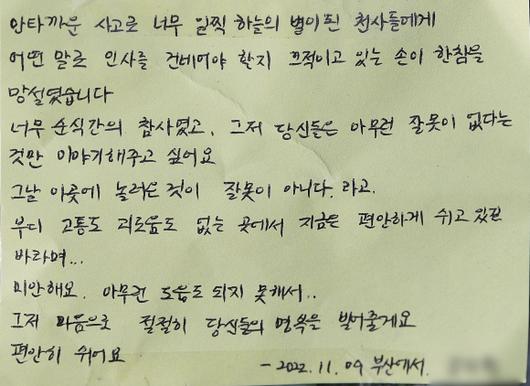 안타까운 사고로 너무 일찍 하늘의 별이 된 천사들에게
어떤 말로 인사를 건네어야 할지 끄적이고 있는 손이 한참을
망설였습니다
너무 순식간의 참사였고, 그저 당신들은 아무런 잘못이 없다는
것만 이야기해주고 싶어요
그날 이곳에 놀러온 것이 잘못이 아니다. 라고.
부디 고통도 괴로움도 없는 곳에서 지금은 편안하게 쉬고 있길
바라며...
미안해요. 아무런 도움도 되지 못해서..
그저 마음으로 절절히 당신들의 명복을 빌어줄게요
편안히 쉬어요
- 2022. 11. 09 부산에서.